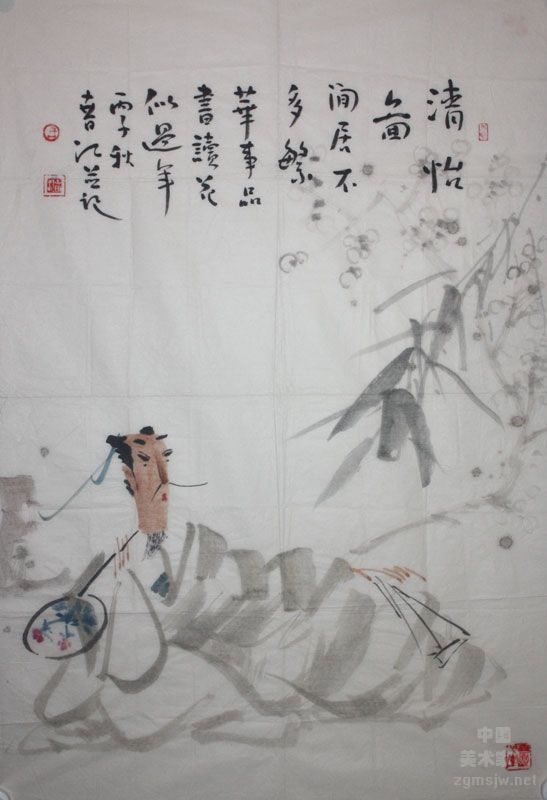 清怡
图
闲居不
多繁
華事品
書讀花
似過年
丙子秋
记
中国
美术家
zgmsjw.net